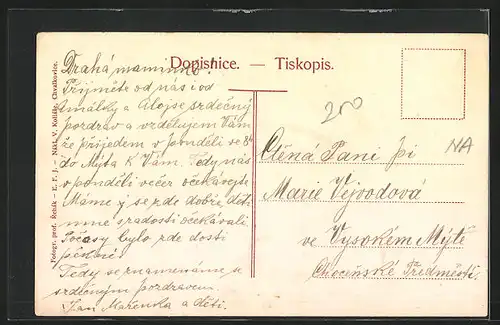 Dopisnice. — Tiskopis.
Drahá maminko!
Přijměte od nás i od
Amálky a Alojse srdečný
pozdrav a vzdělujem Vám
že přijedem v pondělí ve 8h
do Mýta k Vám. Tedy nás
v pondělí večer očekávejte
Máme se zde dobře, děti
sradosti očekávali.
Počasy bylo zde dosti
pěkné.
Tedy se znamenáme se
srdečným pozdravem
Jan Mařenka a děti.
200
NA
Ctěná Paní pí
Marie Vejvodová
ve Vysokém Mýtě
Choceňské Předměstí.
Fotogr. prof. Řehák — E. F. J. — Nákl. V. Chvalkovice.